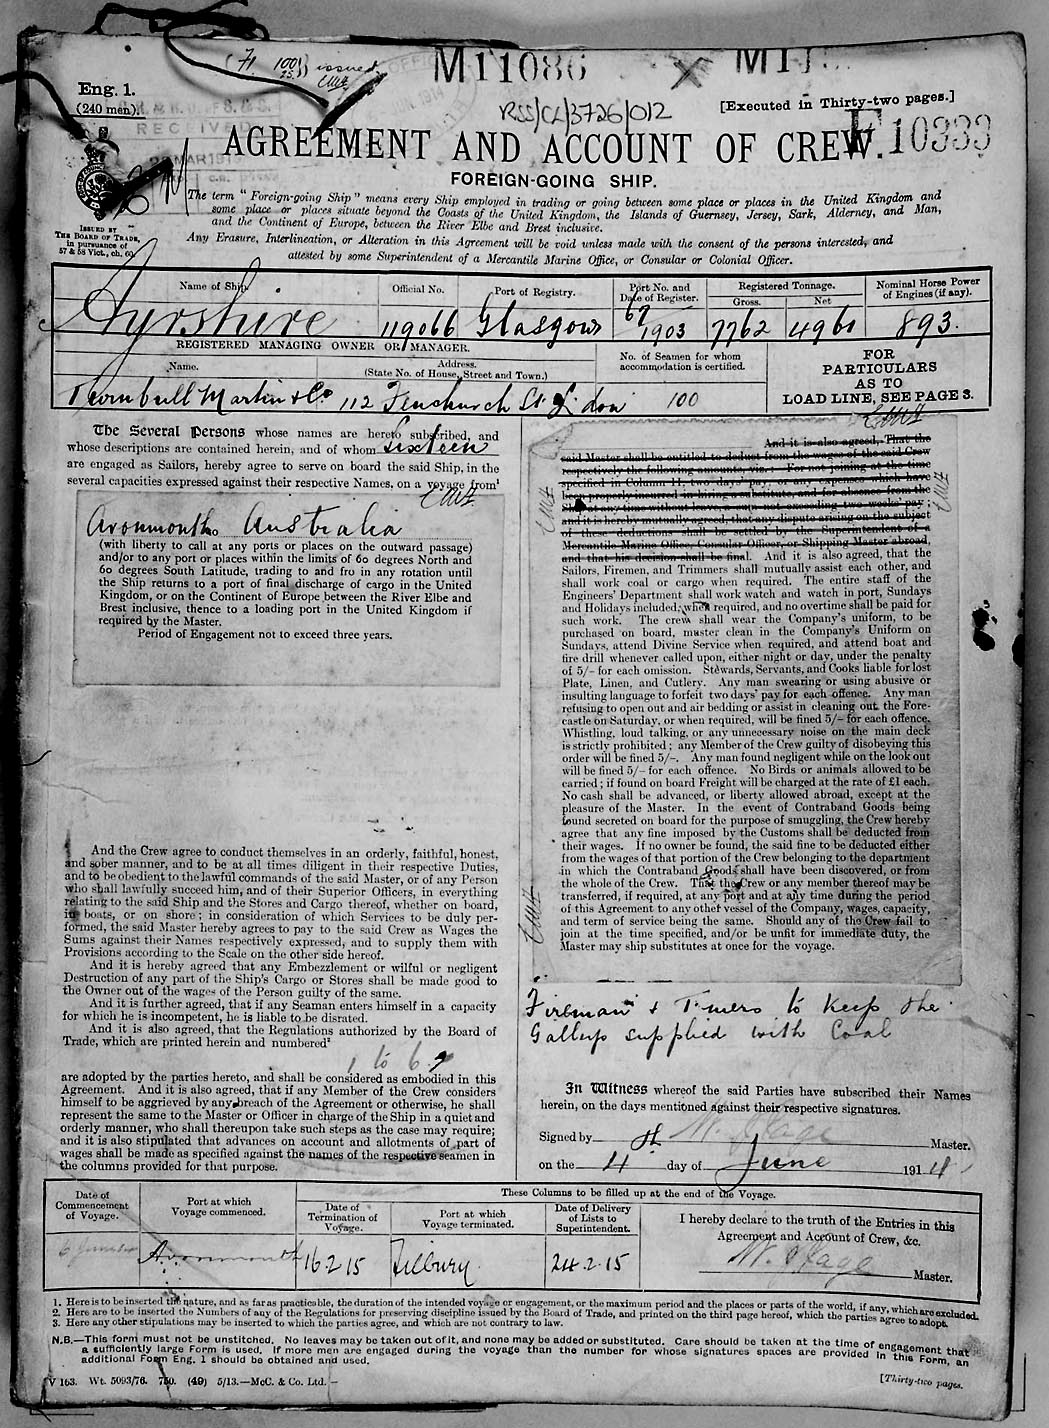 ( 71 100 issued
25
M11086
Eng. 1.
(240 men).
RSS/CL/3726/012
[Executed in Thirty-two pages.]
RECEIVED
10333
AGREEMENT AND ACCOUNT OF CREW.
FOREIGN-GOING SHIP.
ISSUED BY
THE BOARD OF TRADE,
in pursuance of
57 & 58 Vict., ch. 60.
The term "Foreign-going Ship" means every Ship employed in trading or going between some place or places in the United Kingdom and
some place or places situate beyond the Coasts of the United Kingdom, the Islands of Guernsey, Jersey, Sark, Alderney, and Man,
and the Continent of Europe, between the River Elbe and Brest inclusive.
Any Erasure, Interlineation, or Alteration in this Agreement will be void unless made with the consent of the persons interested, and
attested by some Superintendent of a Mercantile Marine Office, or Consular or Colonial Officer.
Name of Ship. Official No. Port of Registry. Port No. and Date of Register. Registered Tonnage. Gross. Net Nominal Horse Power of Engines (if any).
Ayrshire 119066 Glasgow 67/1903 7762 4960 893.
REGISTERED MANAGING OWNER OR MANAGER.
Name. Address. (State No. of House, Street and Town.)
No. of Seamen for whom accommodation is certified.
FOR PARTICULARS AS TO LOAD LINE, SEE PAGE 3.
Turnbull Martin & Co 112 Fenchurch St. London 100
The Several Persons whose names are hereto subscribed, and
whose descriptions are contained herein, and of whom Sixteen
are engaged as Sailors, hereby agree to serve on board the said Ship, in the
several capacities expressed against their respective Names, on a voyage from¹
Avonmouth to Australia
(with liberty to call at any ports or places on the outward passage)
and/or to any port or places within the limits of 60 degrees North and
60 degrees South Latitude, trading to and fro in any rotation until
the Ship returns to a port of final discharge of cargo in the United
Kingdom, or on the Continent of Europe between the River Elbe and
Brest inclusive, thence to a loading port in the United Kingdom if
required by the Master.
Period of Engagement not to exceed three years.
And the Crew agree to conduct themselves in an orderly, faithful, honest,
and sober manner, and to be at all times diligent in their respective Duties,
and to be obedient to the lawful commands of the said Master, or of any Person
who shall lawfully succeed him, and of their Superior Officers, in everything
relating to the said Ship and the Stores and Cargo thereof, whether on board,
in boats, or on shore; in consideration of which Services to be duly per-
formed, the said Master hereby agrees to pay to the said Crew as Wages the
Sums against their Names respectively expressed, and to supply them with
Provisions according to the Scale on the other side hereof.
And it is hereby agreed that any Embezzlement or wilful or negligent
Destruction of any part of the Ship's Cargo or Stores shall be made good to
the Owner out of the wages of the Person guilty of the same.
And it is further agreed, that if any Seaman enters himself in a capacity
for which he is incompetent, he is liable to be disrated.
And it is also agreed, that the Regulations authorized by the Board of
Trade, which are printed herein and numbered²
1 to 6
are adopted by the parties hereto, and shall be considered as embodied in this
Agreement. And it is also agreed, that if any Member of the Crew considers
himself to be aggrieved by any breach of the Agreement or otherwise, he shall
represent the same to the Master or Officer in charge of the Ship in a quiet and
orderly manner, who shall thereupon take such steps as the case may require;
and it is also stipulated that advances on account and allotments of part of
wages shall be made as specified against the names of the respective seamen in
the columns provided for that purpose.
And it is also agreed, That the
said Master shall be entitled to deduct from the wages of the said Crew
respectively the following amounts, viz.: For not joining at the time
specified in Column 11, two days' pay, or any expenses which have
been properly incurred in hiring a substitute, and for absence from the
Ship at any time without leave, a sum not exceeding two weeks' pay;
and it is hereby mutually agreed, that any dispute arising on the subject
of these deductions shall be settled by the Superintendent of a
Mercantile Marine Office, Consular Officer, or Shipping Master abroad,
and that his decision shall be final. And it is also agreed, that the
Sailors, Firemen, and Trimmers shall mutually assist each other, and
shall work coal or cargo when required. The entire staff of the
Engineers' Department shall work watch and watch in port, Sundays
and Holidays included, when required, and no overtime shall be paid for
such work. The crew shall wear the Company's uniform, to be
purchased on board, muster clean in the Company's Uniform on
Sundays, attend Divine Service when required, and attend boat and
fire drill whenever called upon, either night or day, under the penalty
of 5/- for each omission. Stewards, Servants, and Cooks liable for lost
Plate, Linen, and Cutlery. Any man swearing or using abusive or
insulting language to forfeit two days' pay for each offence. Any man
refusing to open out and air bedding or assist in cleaning out the Fore-
castle on Saturday, or when required, will be fined 5/- for each offence.
Whistling, loud talking, or any unnecessary noise on the main deck
is strictly prohibited; any Member of the Crew guilty of disobeying this
order will be fined 5/-. Any man found negligent while on the look out
will be fined 5/- for each offence. No Birds or animals allowed to be
carried; if found on board Freight will be charged at the rate of £1 each.
No cash shall be advanced, or liberty allowed abroad, except at the
pleasure of the Master. In the event of Contraband Goods being
found secreted on board for the purpose of smuggling, the Crew hereby
agree that any fine imposed by the Customs shall be deducted from
their wages. If no owner be found, the said fine to be deducted either
from the wages of that portion of the Crew belonging to the department
in which the Contraband Goods shall have been discovered, or from
the whole of the Crew. That the Crew or any member thereof may be
transferred, if required, at any port and at any time during the period
of this Agreement to any other vessel of the Company, wages, capacity,
and term of service being the same. Should any of the Crew fail to
join at the time specified, and/or be unfit for immediate duty, the
Master may ship substitutes at once for the voyage.
Fireman & Tmers to keep the
Galleys supplied with Coal
In Witness whereof the said Parties have subscribed their Names
herein, on the days mentioned against their respective signatures.
Signed by Master.
on the 4 day of June 1914
Date of Commencement of Voyage. Port at which Voyage commenced. These Columns to be filled up at the end of the Voyage.
Date of Termination of Voyage. Port at which Voyage terminated. Date of Delivery of Lists to Superintendent.
I hereby declare to the truth of the Entries in this
Agreement and Account of Crew, &c.
Master.
6 Avonmouth 16 2 15 Tilbury 24.2.15
1. Here is to be inserted the nature, and as far as practicable, the duration of the intended voyage or engagement, or the maximum period and the places or parts of the world, if any, which are excluded.
2. Here are to be inserted the Numbers of any of the Regulations for preserving discipline issued by the Board of Trade, and printed on the third page hereof, which the parties agree to adopt.
3. Here any other stipulations may be inserted to which the parties agree, and which are not contrary to law.
N.B.—This form must not be unstitched. No leaves may be taken out of it, and none may be added or substituted. Care should be taken at the time of engagement that
a sufficiently large Form is used. If more men are engaged during the voyage than the number for whose signatures spaces are provided in this Form, an
additional Form Eng. 1 should be obtained and used.
V 163. Wt. 5093/76. 750. (49) 5/13.—McC. & Co. Ltd.—
[Thirty-two pages.